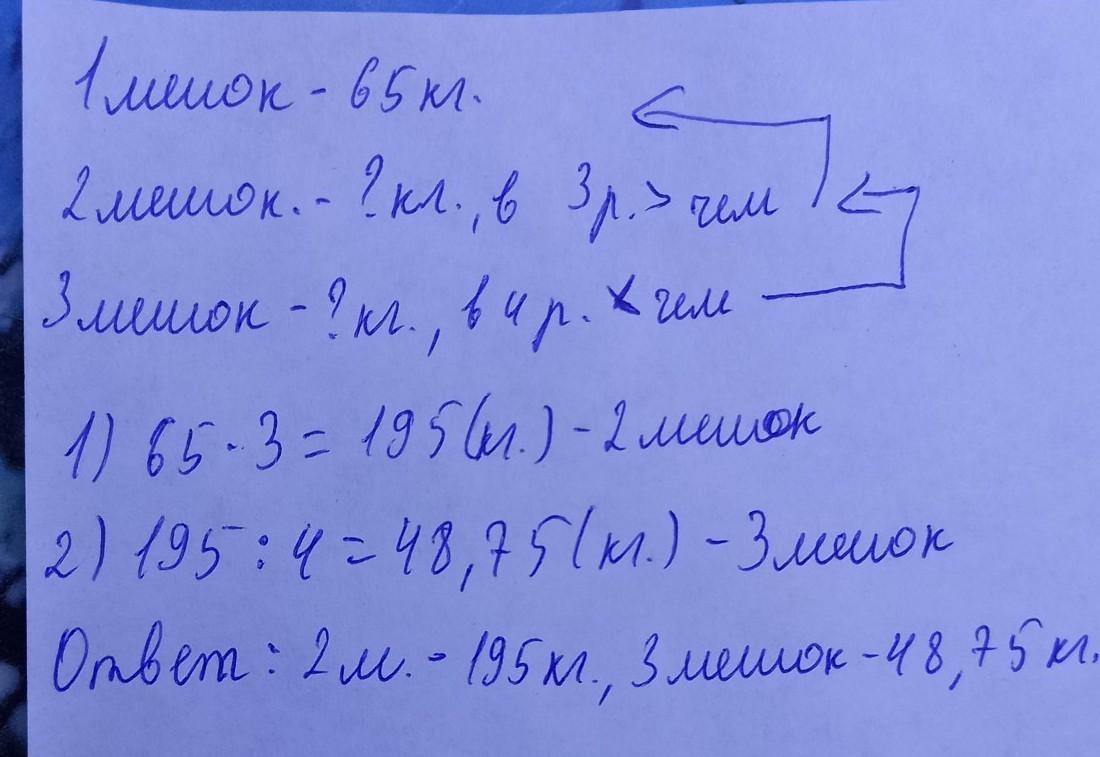 1 мешок - 65 кг.
2 мешок. - ? кг., в 3 р. > чем
3 мешок - ? кг., в 4 р. < чем
1) 65 · 3 = 195 (кг.) - 2 мешок
2) 195 : 4 = 48,75 (кг.) - 3 мешок
Ответ: 2 м. - 195 кг., 3 мешок - 48,75 кг.